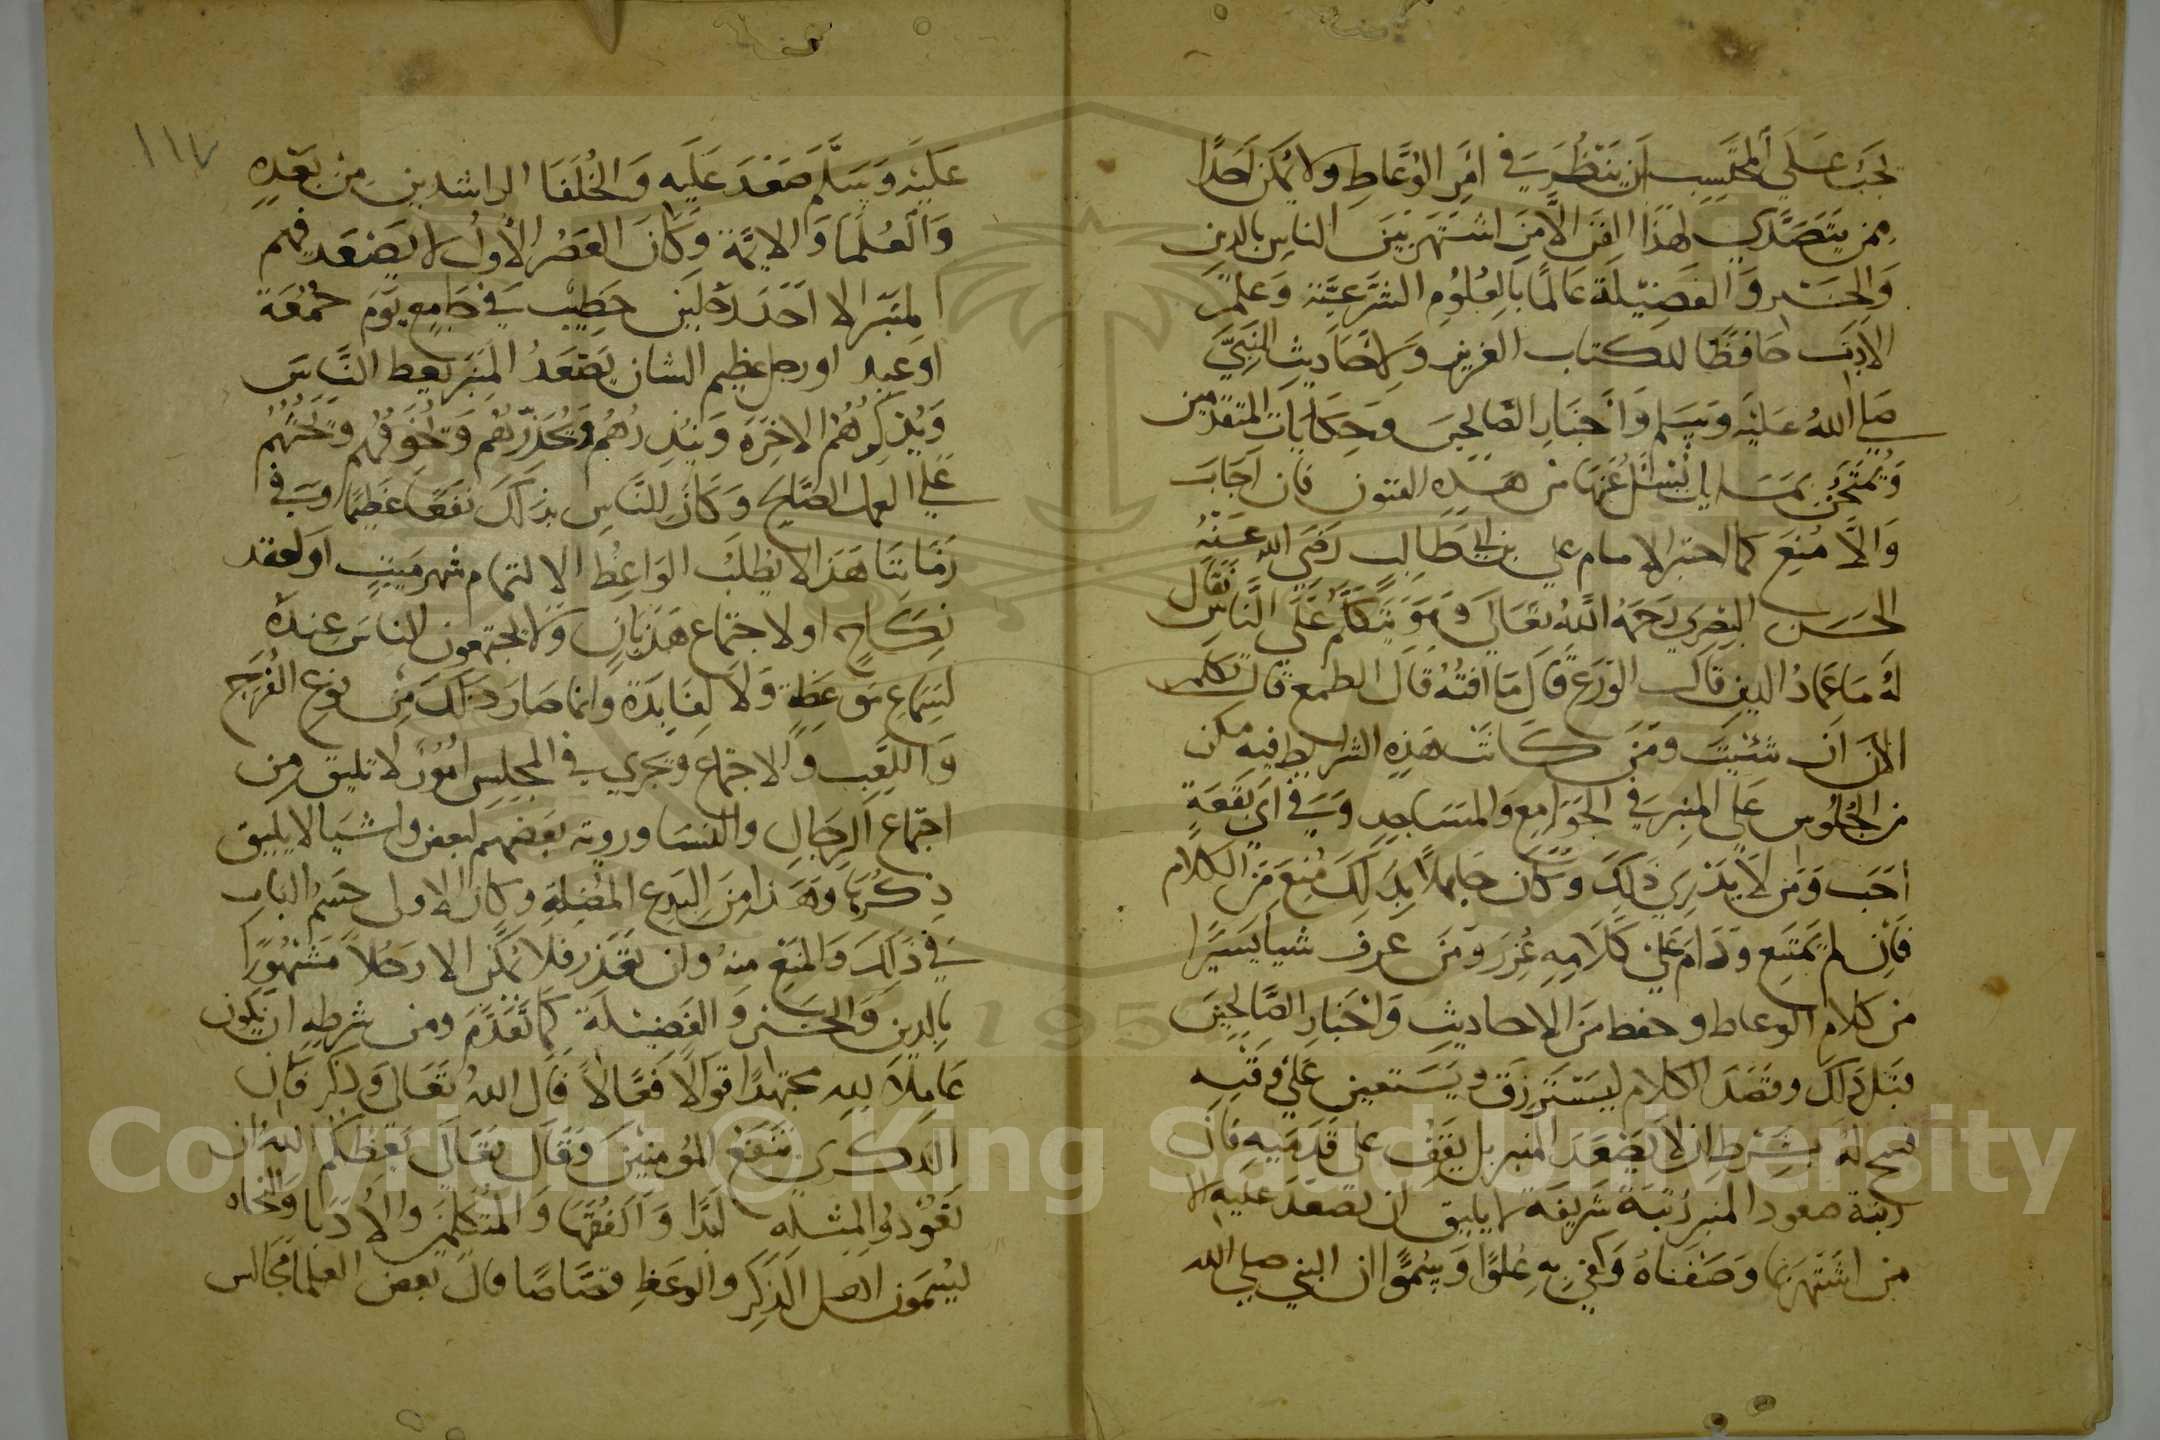 يجب على المحتسب أن ينظر في أمر الوعاظ ولا يمكن أحدًا
ممن يتصدى لهذا الفن الا من اشتهر بين الناس بالدين
والخير والفضيلة عالمًا بالعلوم الشرعية وعلم
الادب حافظًا للكتاب العزيز ولاحاديث النبي
صلى الله عليه وسلم وأخبار الصالحين وحكايات المتقدمين
ويمتحن بمسايل يسئل عنها من هذه الفنون فان أجاب
والا منع كما اختبر الامام علي بن ابي طالب رضي الله عنه
الحسن البصري رحمه الله تعالى وهو يتكلم على الناس فقال
له ما عماد الدين قال الورع قال ما افته قال الطمع قال تكلم
الآن ان شئت ومن كانت هذه الشرايط فيه مكن
من الجلوس على المنبر في الجوامع والمساجد وفي أي بقعة
أحب ومن لا يدري ذلك وكان جاهلا بذلك منع من الكلام
فإن لم يمتنع ودام على كلامه عزر ومن عرف شيا يسيرا
من كلام الوعاظ وحفظ من الاحاديث وأخبار الصالحين
قبل ذلك وقصد الكلام ليسترزق ويستعين على وقته
فسح له بشرط ان لا يصعد المنبر بل يقف على قدميه فان
رتبة صعود المنبر رتبة شريفة لا يليق ان يصعد عليه الا
من اشتهر بما وصفناه وكفى به علوا وسموا ان النبي صلى الله
عليه وسلم صعد عليه والخلفا الراشدين من بعده
والعلما والايمة وكان العصر الأول لا يصعد فيهم
المنبر الا احد رجلين خطيب في جامع يوم جمعة
او عيد او رجل عظيم الشان يصعد المنبر يعظ الناس
ويذكرهم الاخرة وينذرهم ويحذرهم ويخوفهم ويحثهم
على العمل الصالح وكان للناس بذلك نفعا عظيما وفي
زماننا هذا لا يطلب الواعظ الا لتمام شهر ميت او لعقد
نكاح او لاجتماع هذيان ولا يجتمعون الناس عنده
لسماع موعظة ولا لفايدة وانما صار ذلك من نوع الفرج
واللعب والاجتماع ويجري في المجلس أمور لا تليق من
اجتماع الرجال والنسا وروية بعضهم لبعض واشيا لا يليق
ذكرها وهذا من البدع المضلة وكان الاولى حسم الباب
في ذلك والمنع منه وان تعذر فلا يمكن الا رجلا مشهورا
بالدين والخير والفضيلة كما تقدم ومن شرطه ان يكون
عاملا لله مجتهدا قوالا فعالا قال الله تعالى وذكر فان
الذكرى تنفع المؤمنين وقال تعالى يعظكم الله ان
تعودوا لمثله ابدا والفقها والمتكلمين والأدبا والنحاه
ليسمون اهل الذكر والوعظ قصاصا قال بعض العلما مجالس
١١٧
Copyright © King Saud University
1957